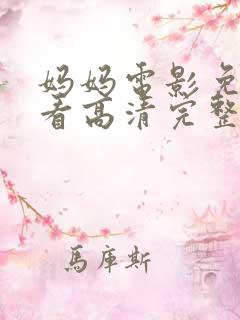 妈妈电影免
看高清完整
馬庫斯